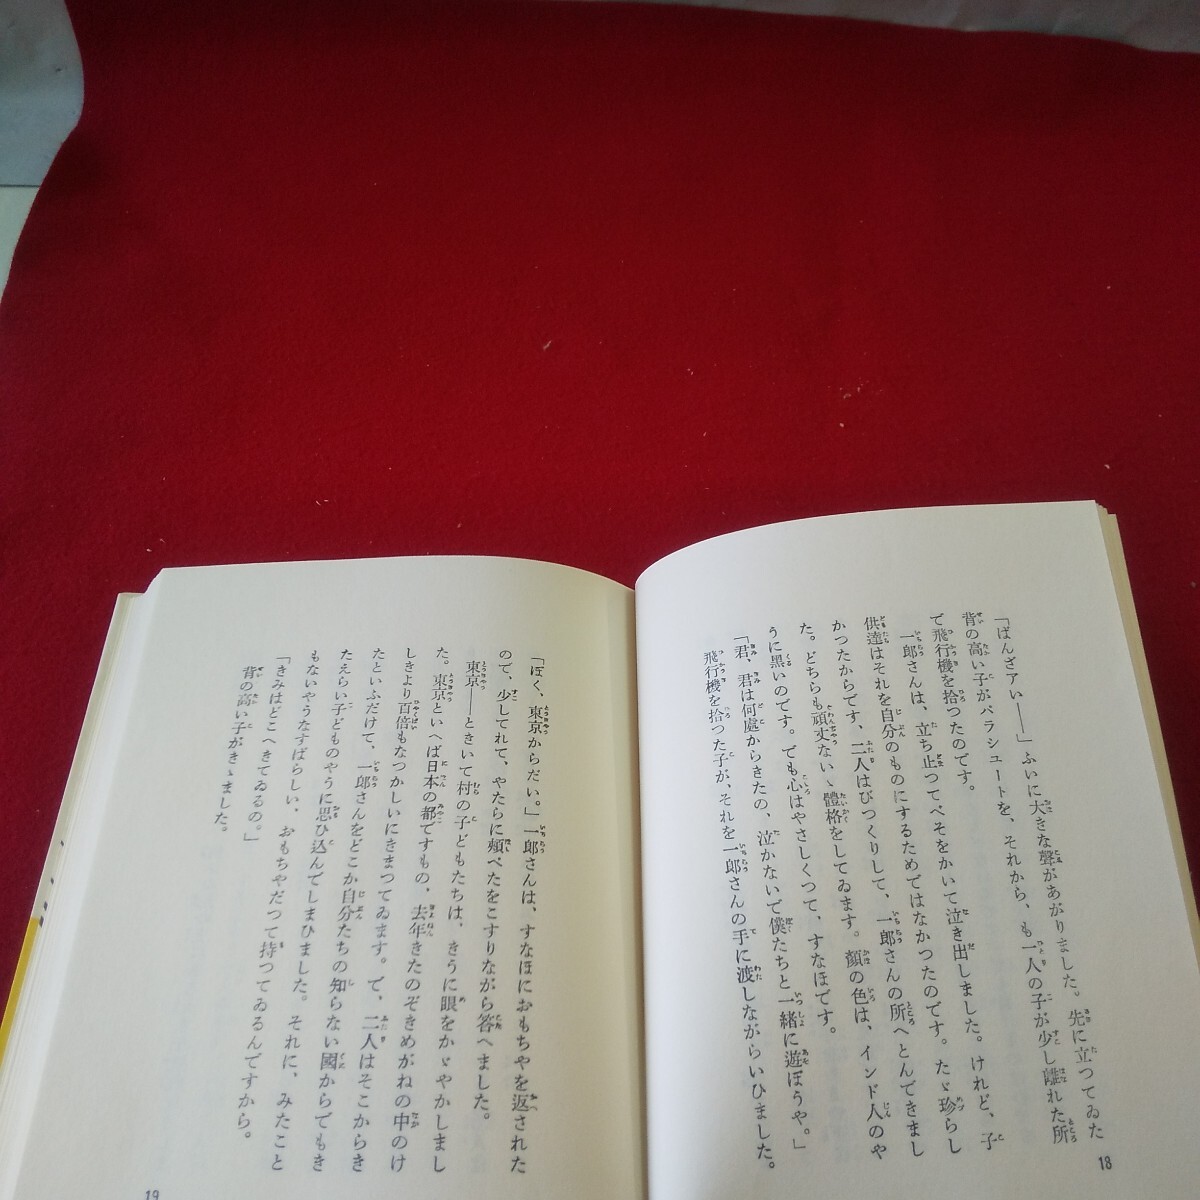 「ばんざアい――」ふいに大きな聲があがりました。先に立つてゐた
背の高い子がパラシュートを、それから、も一人の子が少し離れた所
で飛行機を拾つたのです。
一郎さんは、立ち止つてべそをかいて泣き出しました。けれど、子
供達はそれを自分のものにするためではなかつたのです。たゞ珍らし
かつたからです、二人はびつくりして、一郎さんの所へとんできまし
た。どちらも頑丈ないゝ體格をしてゐます。顔の色は、インド人のや
うに黒いのです。でも心はやさしくつて、すなほです。
「君、君は何處からきたの、泣かないで僕たちと一緒に遊ぼうや。」
飛行機を拾つた子が、それを一郎さんの手に渡しながらいひました。
18
「ぼく、東京からだい。」一郎さんは、すなほにおもちやを返された
ので、少してれて、やたらに頰ぺたをこすりながら答へました。
東京――ときいて村の子どもたちは、きうに眼をかゞやかしまし
た。東京といへば日本の都ですもの、去年きたのぞきめがねの中のけ
しきより百倍もなつかしいにきまつてゐます。で、二人はそこからき
たといふだけて、一郎さんをどこか自分たちの知らない國からでもき
たえらい子どものやうに思ひ込んでしまひました。それに、みたこと
もないやうなすばらしい、おもちやだつて持つてゐるんですから。
「きみはどこへきてゐるの。」
背の高い子がきゝました。
19